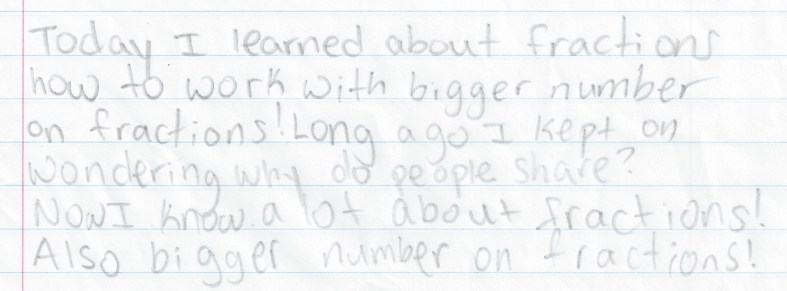 Today I learned about fractions
how to work with bigger number
on fractions! Long ago I kept on
wondering why do people share?
Now I know a lot about fractions!
Also bigger number on fractions!